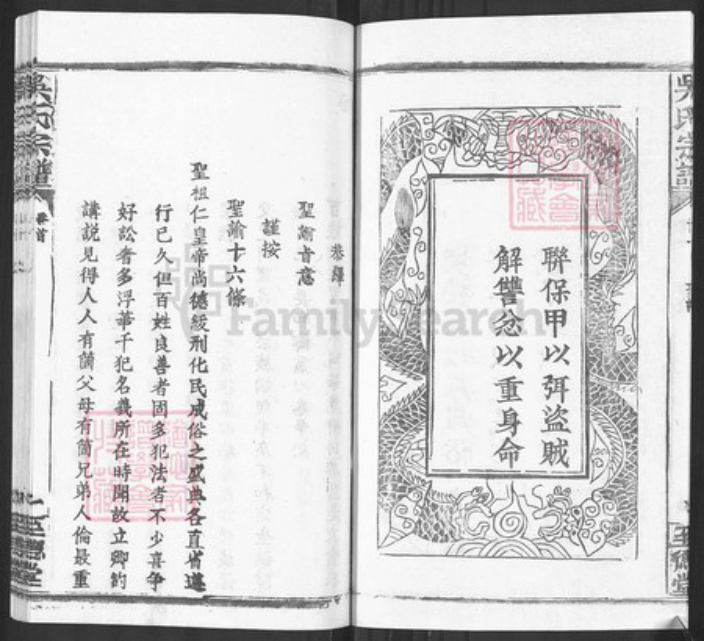 聯保甲以弭盜賊
解讐忿以重身命
恭繹
聖諭旨意
謹按
聖諭十六條
聖祖仁皇帝尚德緩刑化民成俗之盛典各直省遵
行已久但百姓良善者固多犯法者不少喜爭
好訟者多浮華干犯名義所在時聞故立鄉約
講說見得人人有箇父母有箇兄弟人倫最重
吳氏宗譜
卷首
至德堂
吳氏宗譜
至德堂
FamilySearch